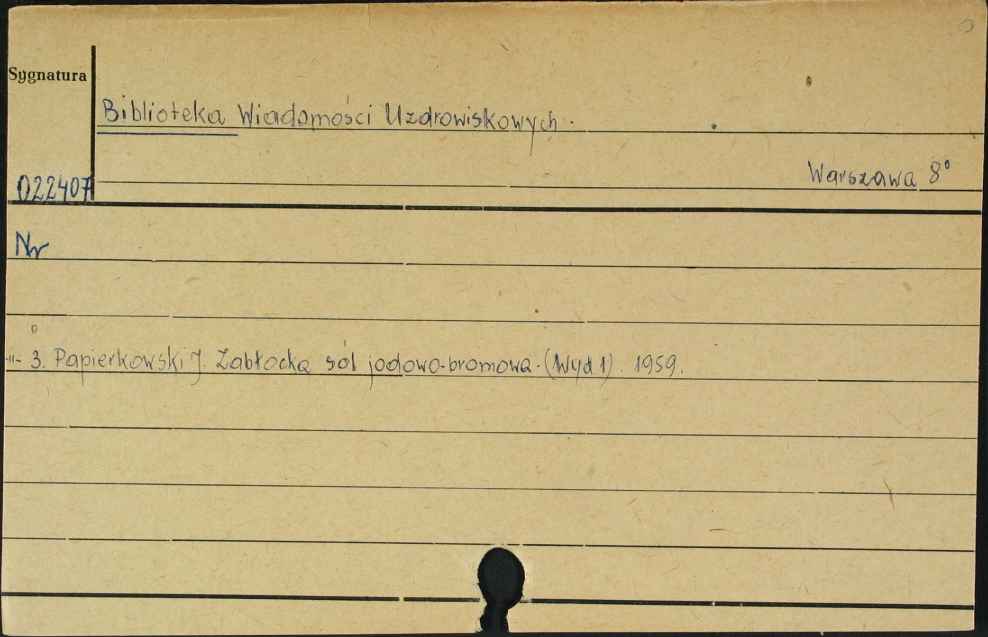 Sygnatura
Biblioteka Wiadomości Uzdrowiskowych.
Warszawa 8°
022407
Nr
-"- 3. Papierkowski J. Zabłocka sól jodowo-bromowa. (Wyd 1). 1959.